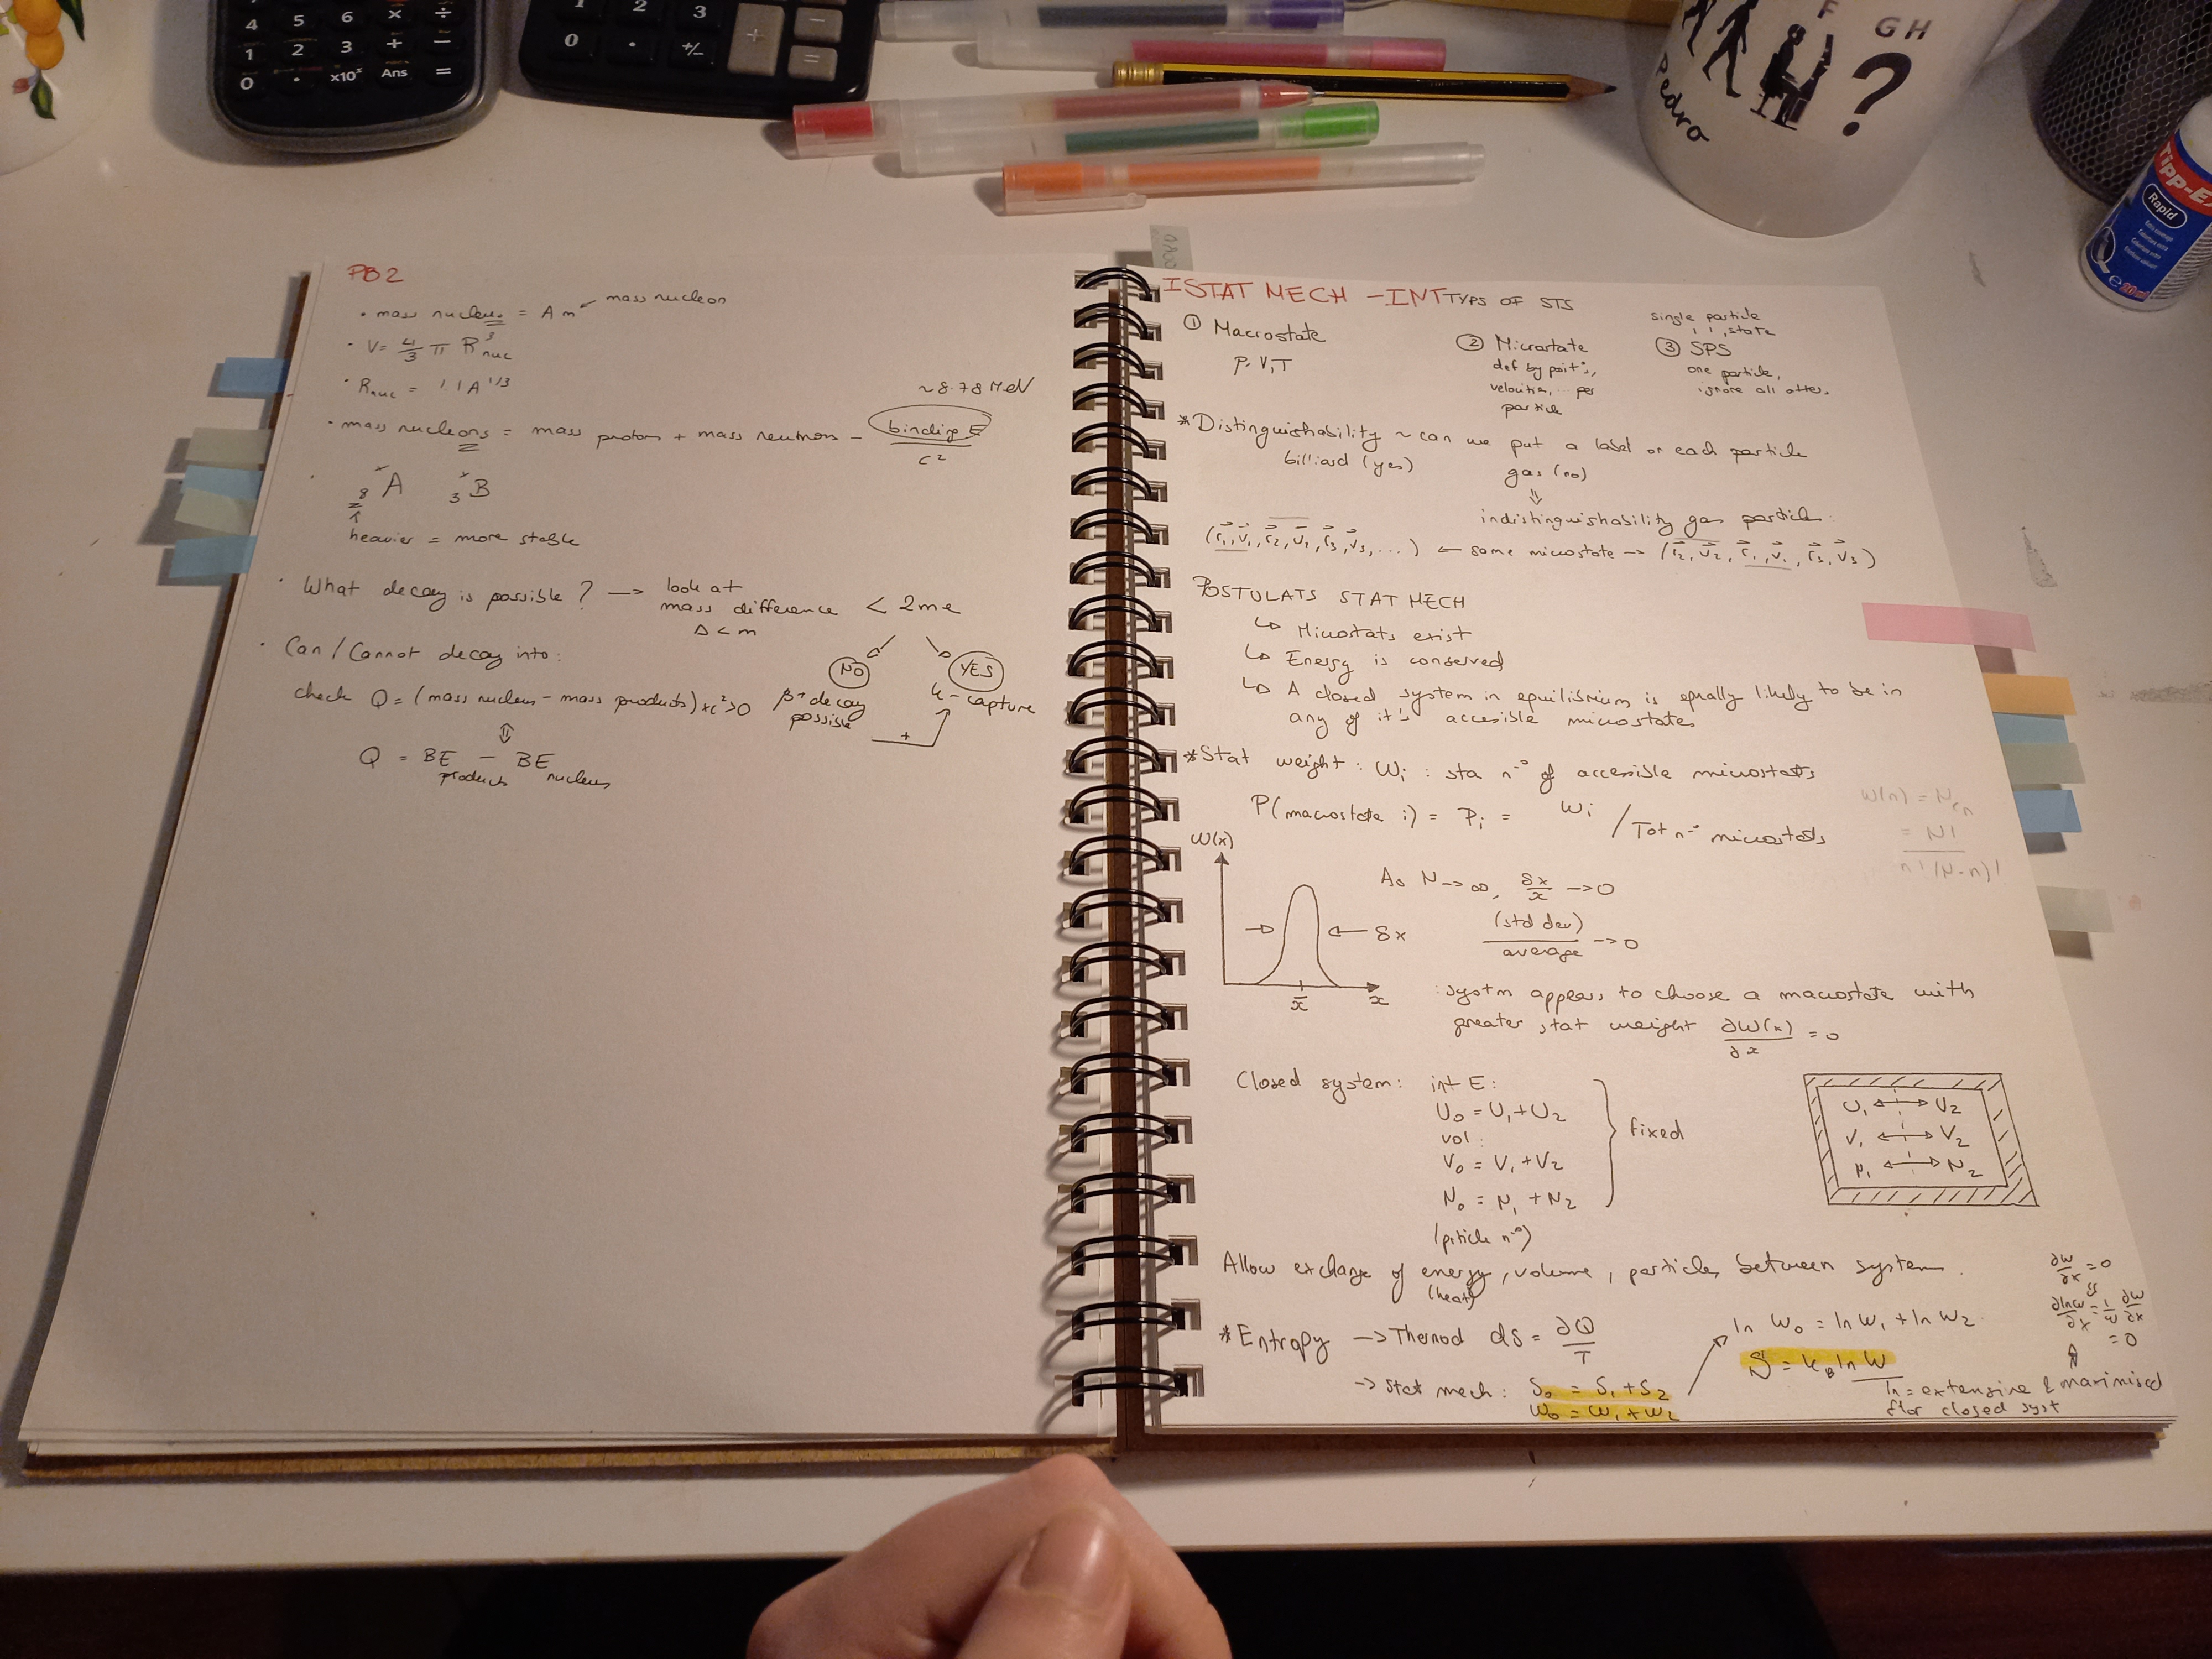 PB2
• mass nucleus = A m ← mass nucleon
• V = 4/3 π R³nuc
• Rnuc = 1.1 A^1/3
• mass nucleons = mass proton + mass neutron - binding E / c²
~8.78 MeV
A B
heavier = more stable
• What decay is possible? → look at mass difference < 2me
Δ < m
NO YES
β+ decay possible
k-capture
• Can / Cannot decay into:
check Q = (mass nucleus - mass products) × c² > 0
Q = BE products - BE nucleus
I STAT MECH - INT
TYPS OF STS
① Macrostate
P, V, T
② Microstate
def by posit°,
velocities, ... per
particle
single particle state
③ SPS
one particle,
ignore all others
*Distinguishability ~ can we put a label on each particle
billiard (yes)
gas (no)
indistinguishability gas particles:
(r₁, v₁, r₂, v₂, r₃, v₃, ...) ← same microstate → (r₂, v₂, r₁, v₁, r₃, v₃)
POSTULATS STAT MECH
↳ Microstats exist
↳ Energy is conserved
↳ A closed system in equilibrium is equally likely to be in
any of its accessible microstates
*Stat weight: Wi : sta n° of accessible microstats
P(macrostate i) = Pi = Wi / Tot n° microstats
W(n) = NCn
= N! / n!(N-n)!
W(x)
x̄
x
δx
As N → ∞, δx/x → 0
(std dev) / average → 0
: systm appears to choose a macrostate with
greater stat weight ∂W(x)/∂x = 0
Closed system: int E: U₀ = U₁ + U₂
vol: V₀ = V₁ + V₂
(pticle n°) N₀ = N₁ + N₂
} fixed
U₁ ↔ U₂
V₁ ↔ V₂
N₁ ↔ N₂
Allow exchange of energy, volume, particles between system.
(heat)
*Entropy → Thermod dS = ∂Q/T
→ Stat mech: S₀ = S₁ + S₂
W₀ = W₁ + W₂
ln W₀ = ln W₁ + ln W₂
S = kB ln W
ln = extensive & maximised
for closed syst
∂W/∂x = 0
∂lnW/∂x = 1/W ∂W/∂x = 0
Pedro
F GH
?
Tipp-Ex
Rapid
20 ml
0 1 2 3 4 5 6
. x10ˣ Ans = + - × ÷
0 . +/- + = -
1 2 3